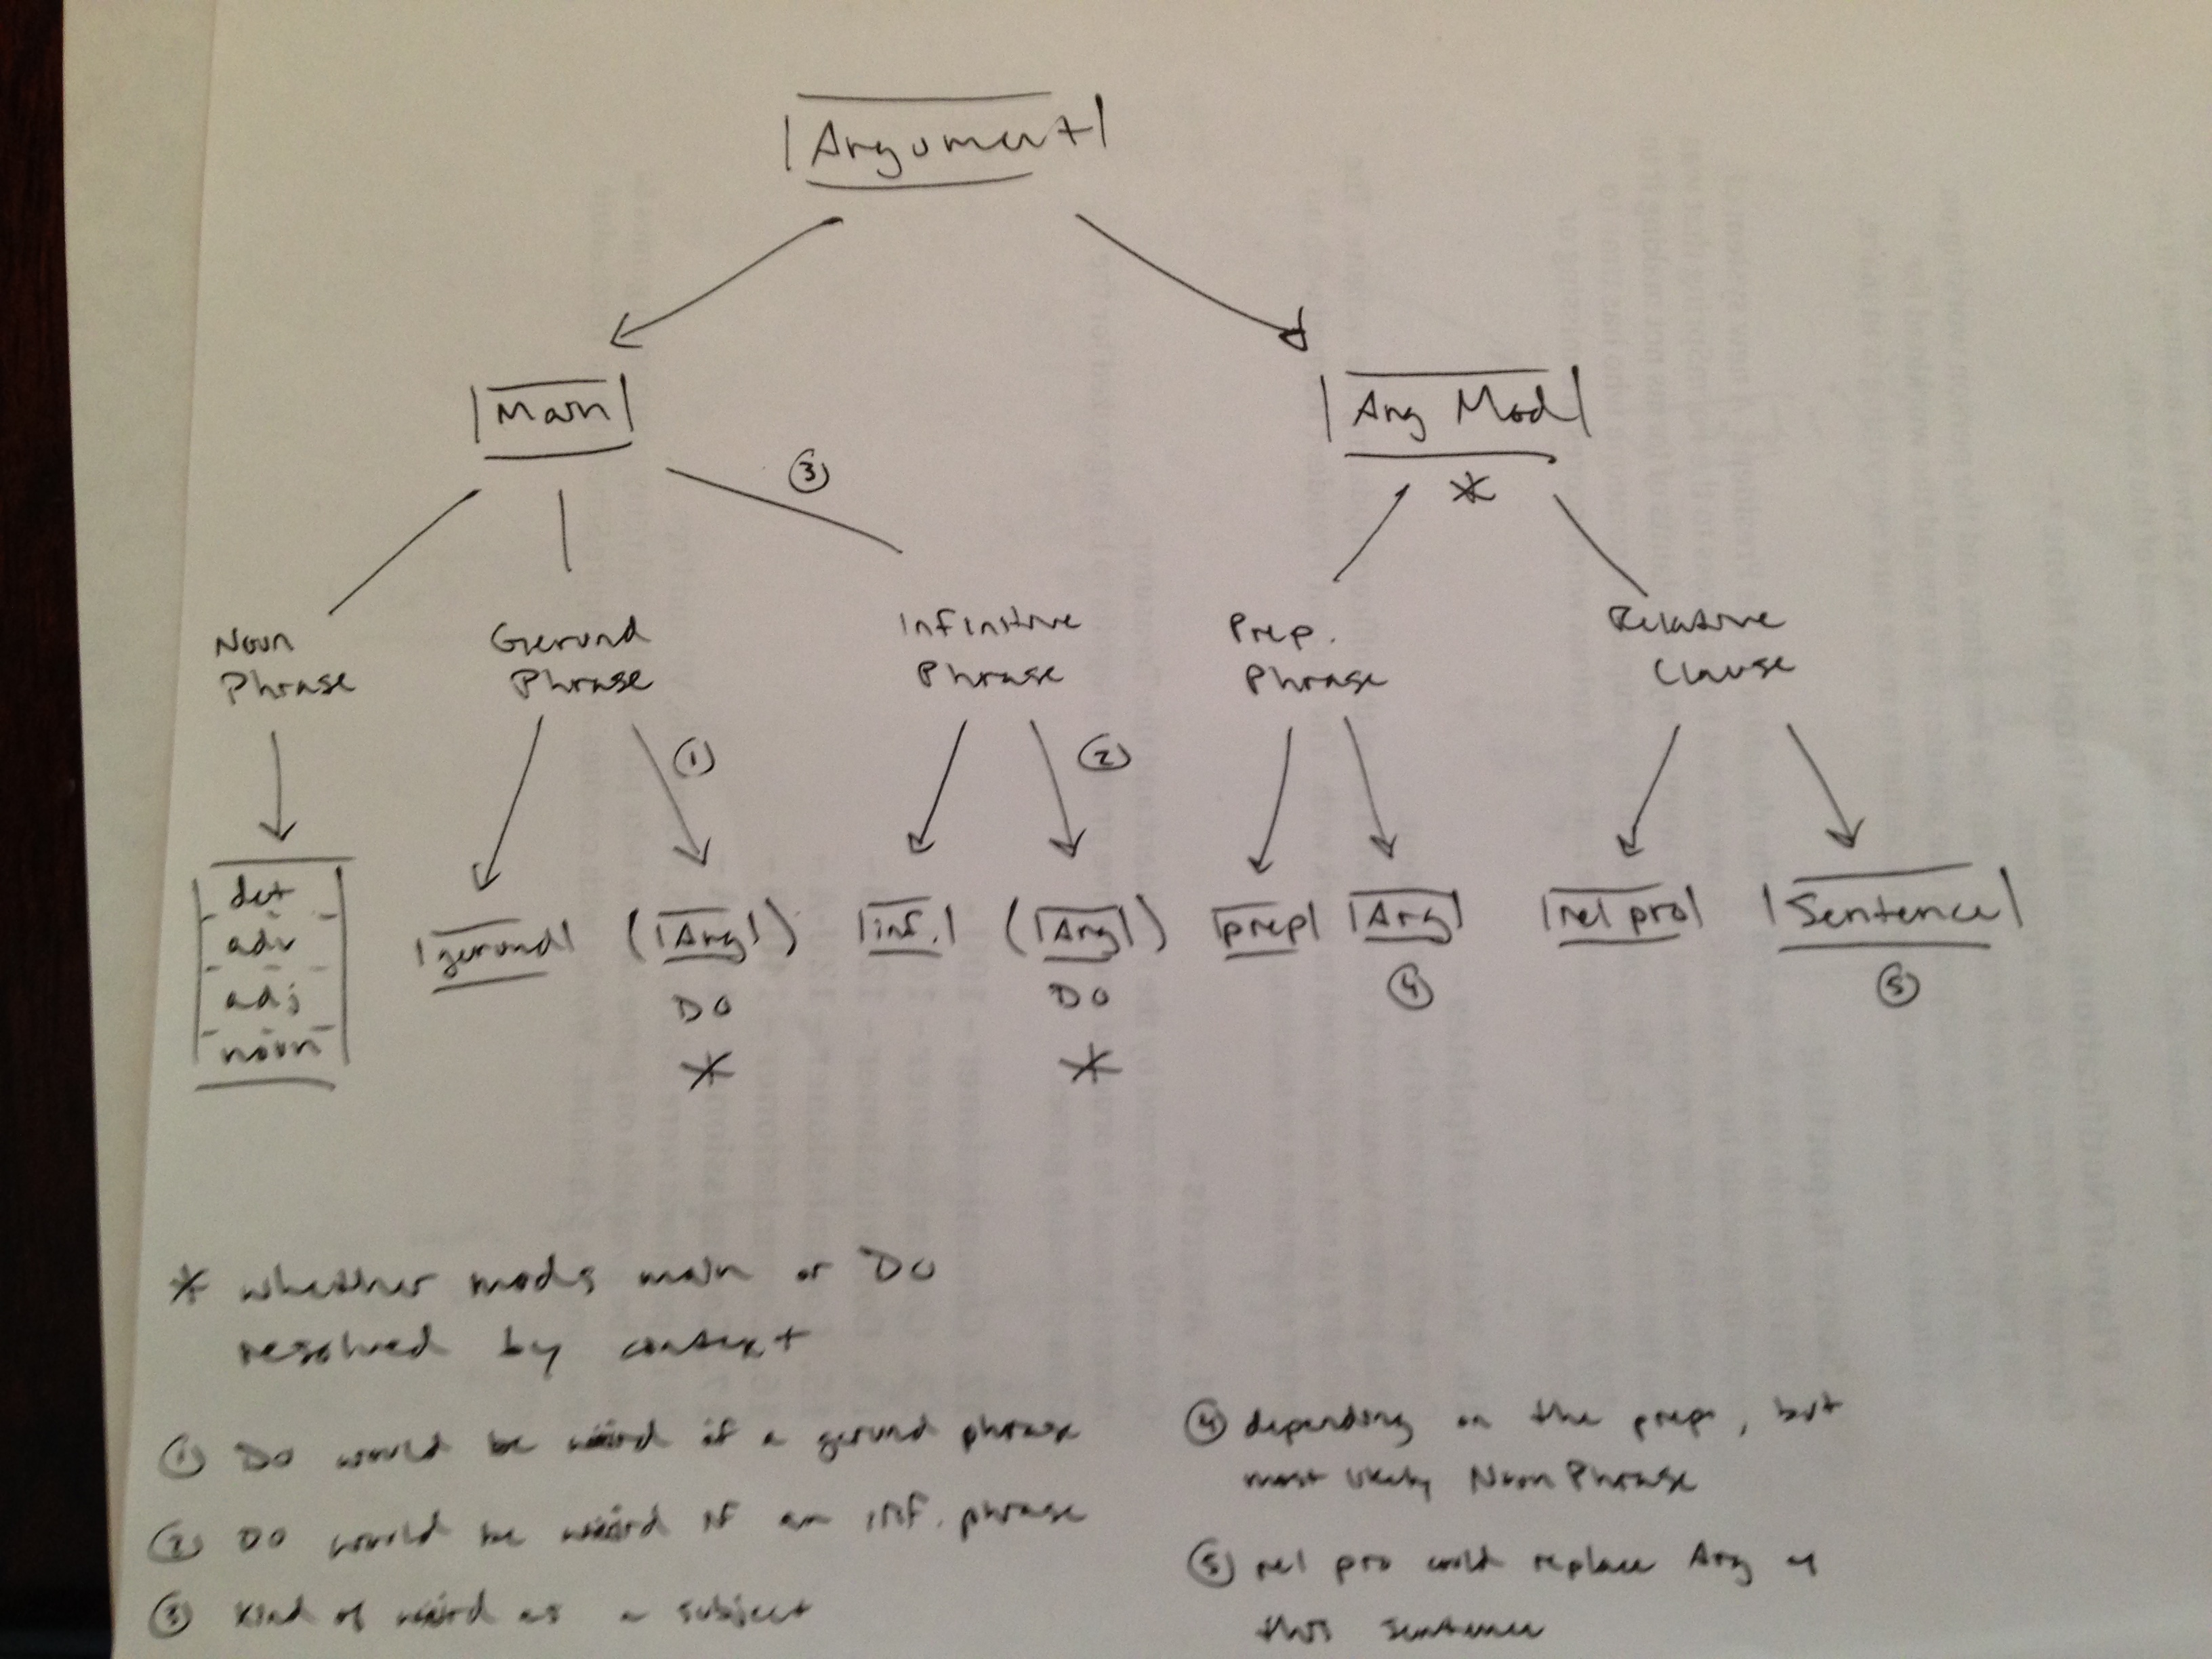 Argument
Main
Arg Mod
③
*
Noun
Phrase
Gerund
Phrase
Infinitive
Phrase
Prep.
Phrase
Relative
Clause
①
②
det
adv
adj
noun
gerund
(Arg)
DO
*
inf.
(Arg)
DO
*
prep
Arg
④
rel pro
Sentence
⑤
* whether mods main or DO
resolved by context
① DO would be weird if a gerund phrase
② DO would be weird if an inf. phrase
③ kind of weird as a subject
④ depending on the prep, but
most likely Noun Phrase
⑤ rel pro could replace Arg of
this sentence